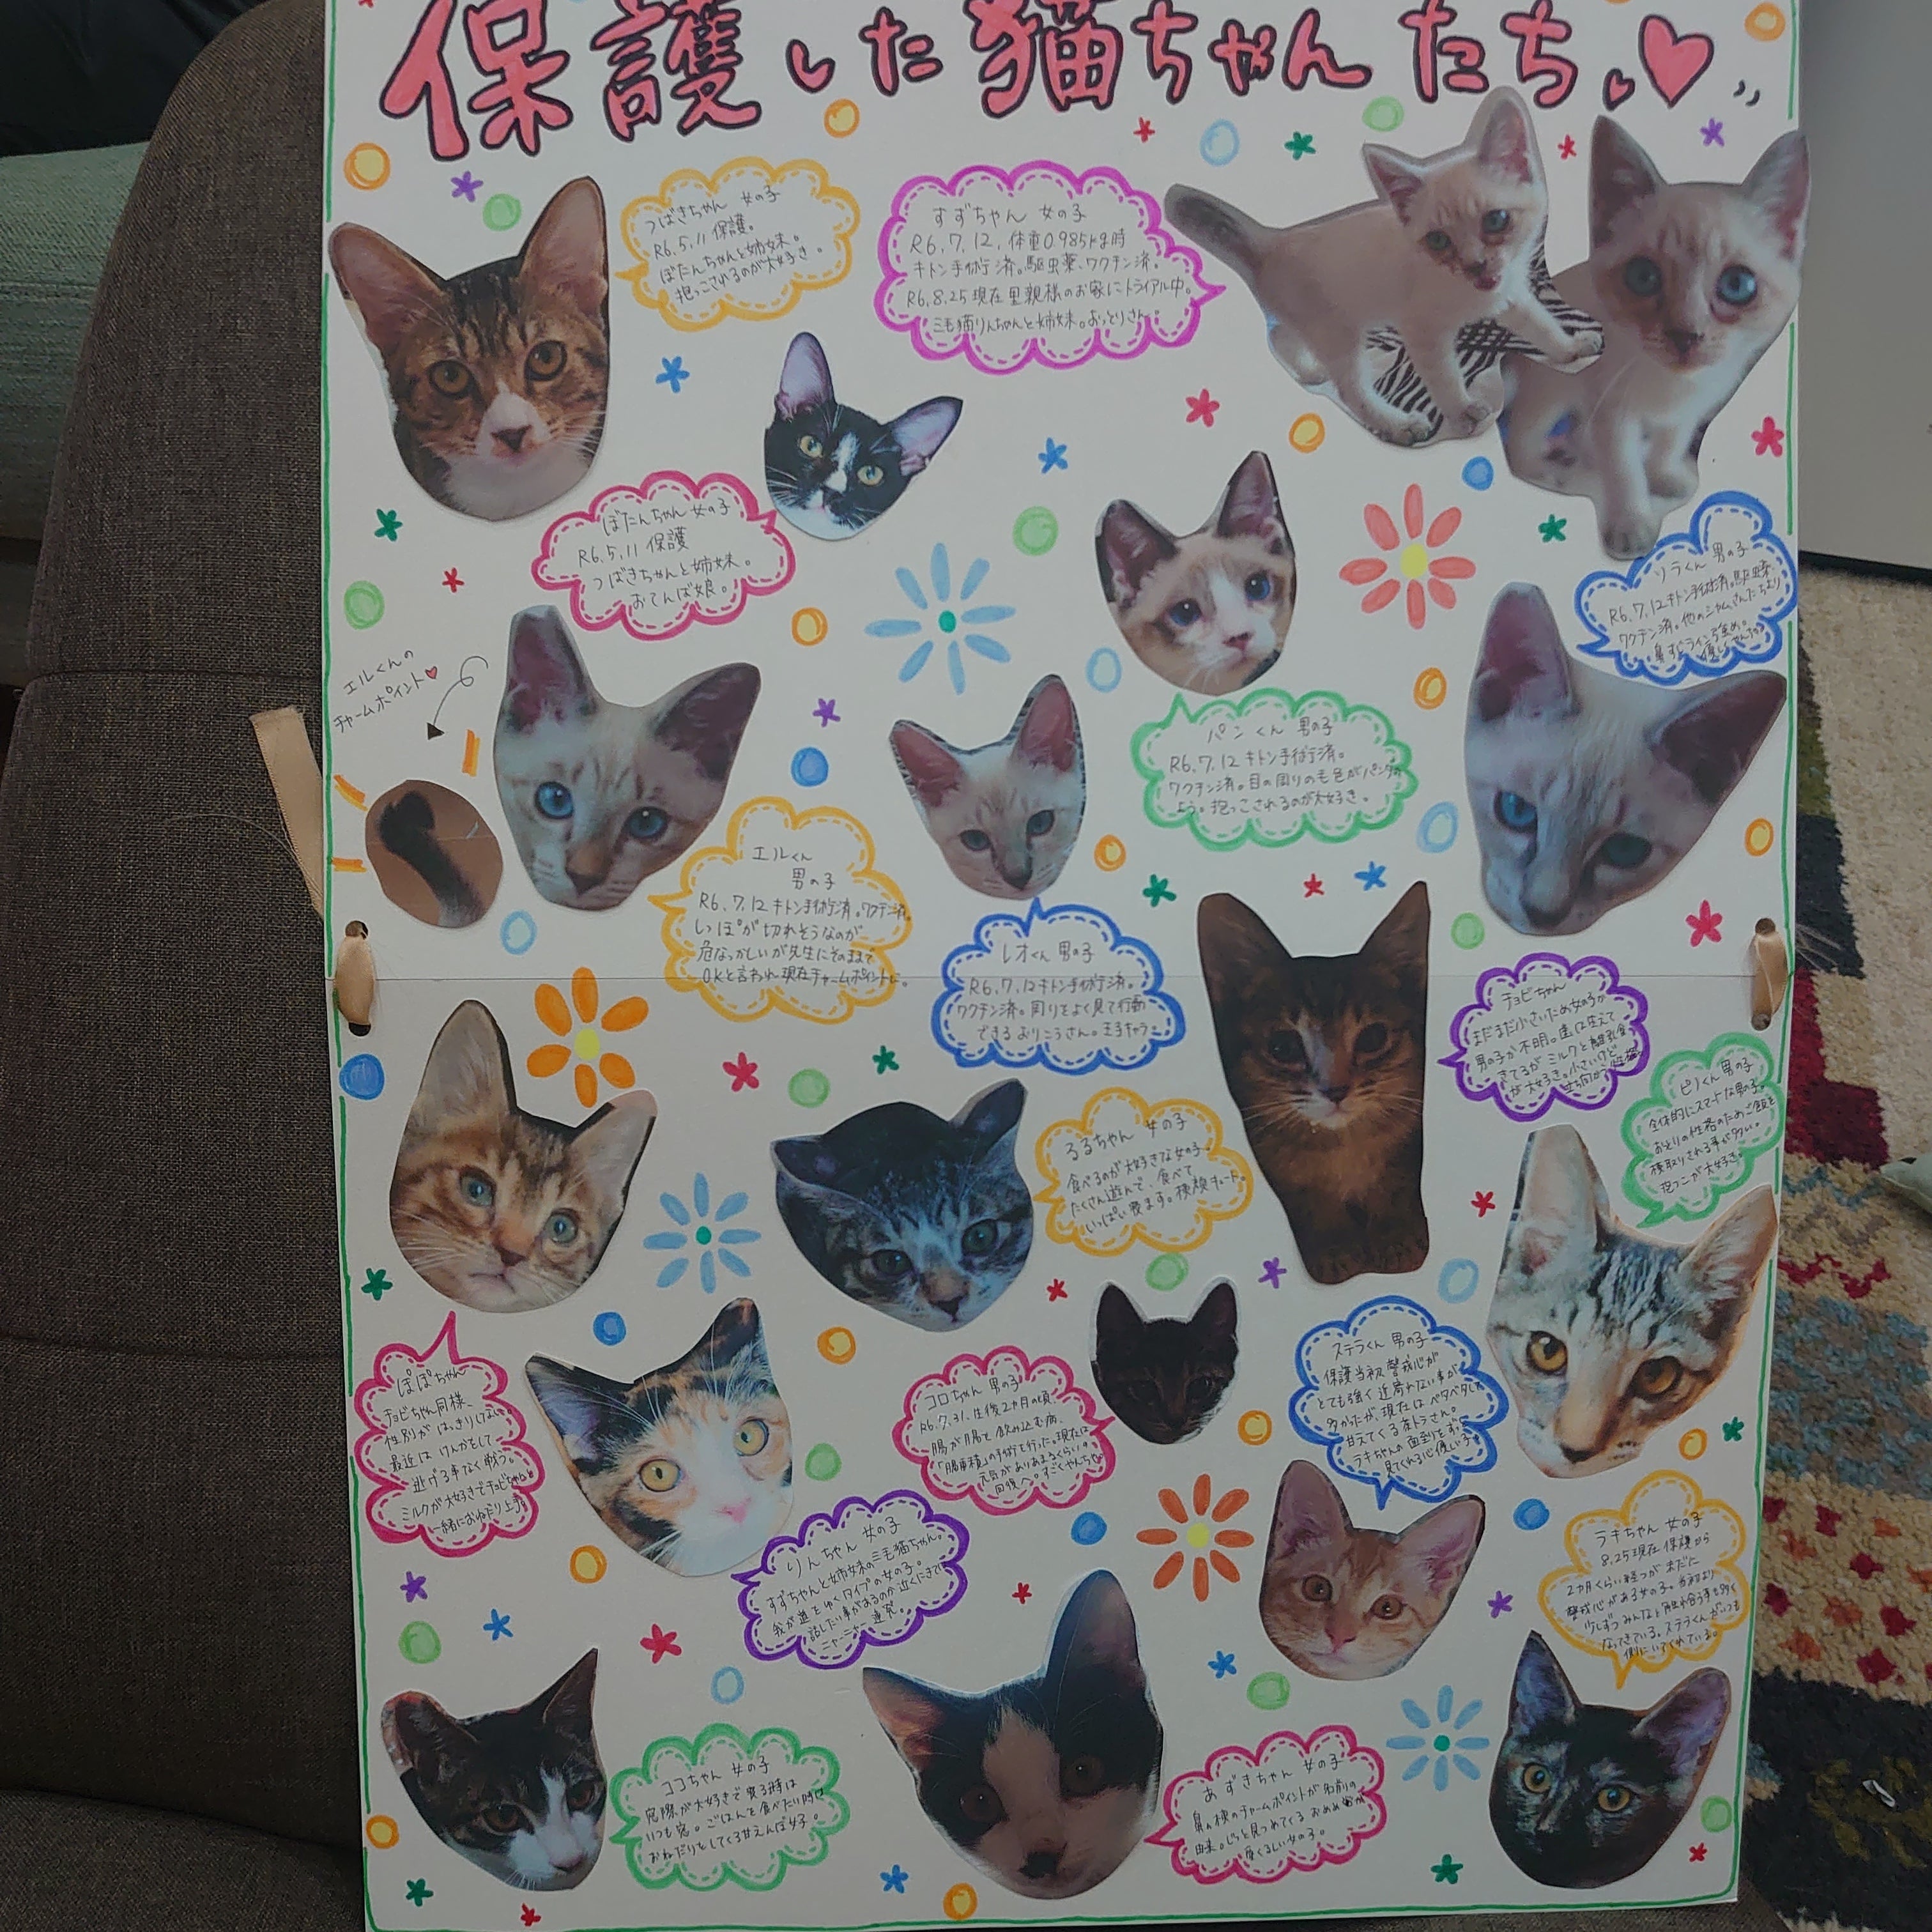 保護した猫ちゃんたち
つばきちゃん 女の子
R6.5.11 保護。
ぼたんちゃんと姉妹。
抱っこされるのが大好き。
すずちゃん 女の子
R6.7.12.体重0.985kg時
キトン手術済。駆虫薬、ワクチン済。
R6.8.25現在里親様のお家にトライアル中。
三毛猫りんちゃんと姉妹。おっとりさん。
ぼたんちゃん 女の子
R6.5.11 保護
つばきちゃんと姉妹。
おてんば娘。
ソラくん 男の子
R6.7.12キトン手術済。駆虫薬、
ワクチン済。他のシャムさんたちより
鼻すじライン強め。
エルくんの
チャームポイント
パンくん 男の子
R6.7.12キトン手術済。
ワクチン済。目の周りの毛色がパンダの
よう。抱っこされるのが大好き。
エルくん
男の子
R6.7.12キトン手術済。ワクチン済。
しっぽが切れそうなのが
危なっかしいが先生にそのままで
OKと言われ現在チャームポイントに。
レオくん 男の子
R6.7.12キトン手術済。
ワクチン済。周りをよく見て行動
できるおりこうさん。王子キャラ
チョビちゃん
まだまだ小さいため女の子か
男の子か不明。歯は生えて
きてるがミルクと離乳食
が大好き。小さいけど
ピノくん 男の子
全体的にスマートな男の子。
おとりの性格のためご飯を
横取りされる事が多い。
抱っこが大好き。
るるちゃん 女の子
食べるのが大好きな女の子。
たくさん遊んで、食べて
いっぱい寝ます。
ぽぽちゃん
チョビちゃん同様、
性別がはっきりしない。
最近はけんかをして
逃げる事なく戦う。
ミルクが大好きでチョビちゃんと
一緒におねだり上手。
コロちゃん 男の子
R6.7.31.生後2カ月の頃、
腸が腸を飲み込む病、
「腸重積」の手術を行った。現在は
元気がありあまるくらい
回復へ。すごくやんちゃ
ステラくん 男の子
保護当初警戒心が
とても強く近寄れない事が
多かったが、現在はベタベタして
甘えてくる茶トラさん。
ラキちゃんの面倒をずっと
見てくれる心優しい子。
りんちゃん 女の子
すずちゃんと姉妹の三毛猫ちゃん。
我が道をゆくタイプの女の子。
話したい事があるのか近くにきて
ニャーニャー連発。
ラキちゃん 女の子
8.25現在保護から
2カ月くらい経つがまだに
警戒心がある女の子。当初より
少しずつみんなと触れ合う事も多く
なってきている。ステラくんがいつも
側にいてくれている。
ココちゃん 女の子
窓際が大好きで寝る時は
いつも窓。ごはんを食べたい時は
おねだりをしてくる甘えんぼ好子。
あずきちゃん 女の子
鼻横のチャームポイントが名前の
由来。じっと見つめてくるおめめが
愛くるしい女の子。